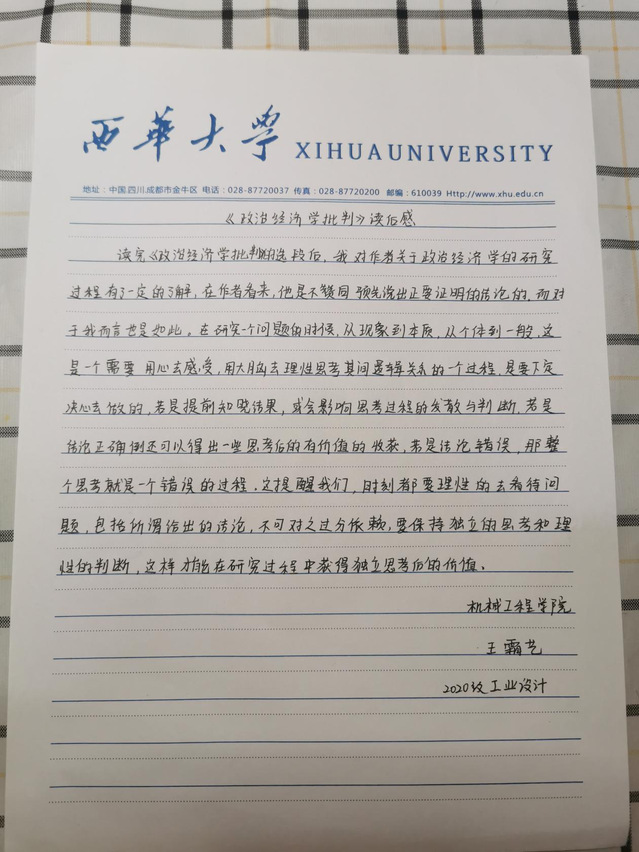 西華大学 XIHUAUNIVERSITY
地址：中国.四川.成都市金牛区 电话：028-87720037 传真：028-87720200 邮编：610039 Http://www.xhu.edu.cn
《政治经济学批判》读后感
读完《政治经济学批判》的选段后，我对作者关于政治经济学的研究
过程有了一定的了解，在作者看来，他是不赞同预先说出正要证明的结论的，而对
于我而言也是如此。在研究一个问题的时候，从现象到本质，从个体到一般，这
是一个需要用心去感受，用大脑去理性思考其间逻辑关系的一个过程，是要下定
决心去做的，若是提前知晓结果，或会影响思考过程的发散与判断，若是
结论正确倒还可以得出一些思考后的有价值的收获，若是结论错误，那整
个思考就是一个错误的过程。这提醒我们，时刻都要理性的去看待问
题，包括所谓给出的结论，不可对之过分依赖，要保持独立的思考和理
性的判断，这样才能在研究过程中获得独立思考后的价值。
机械工程学院
王霜艺
2020级工业设计